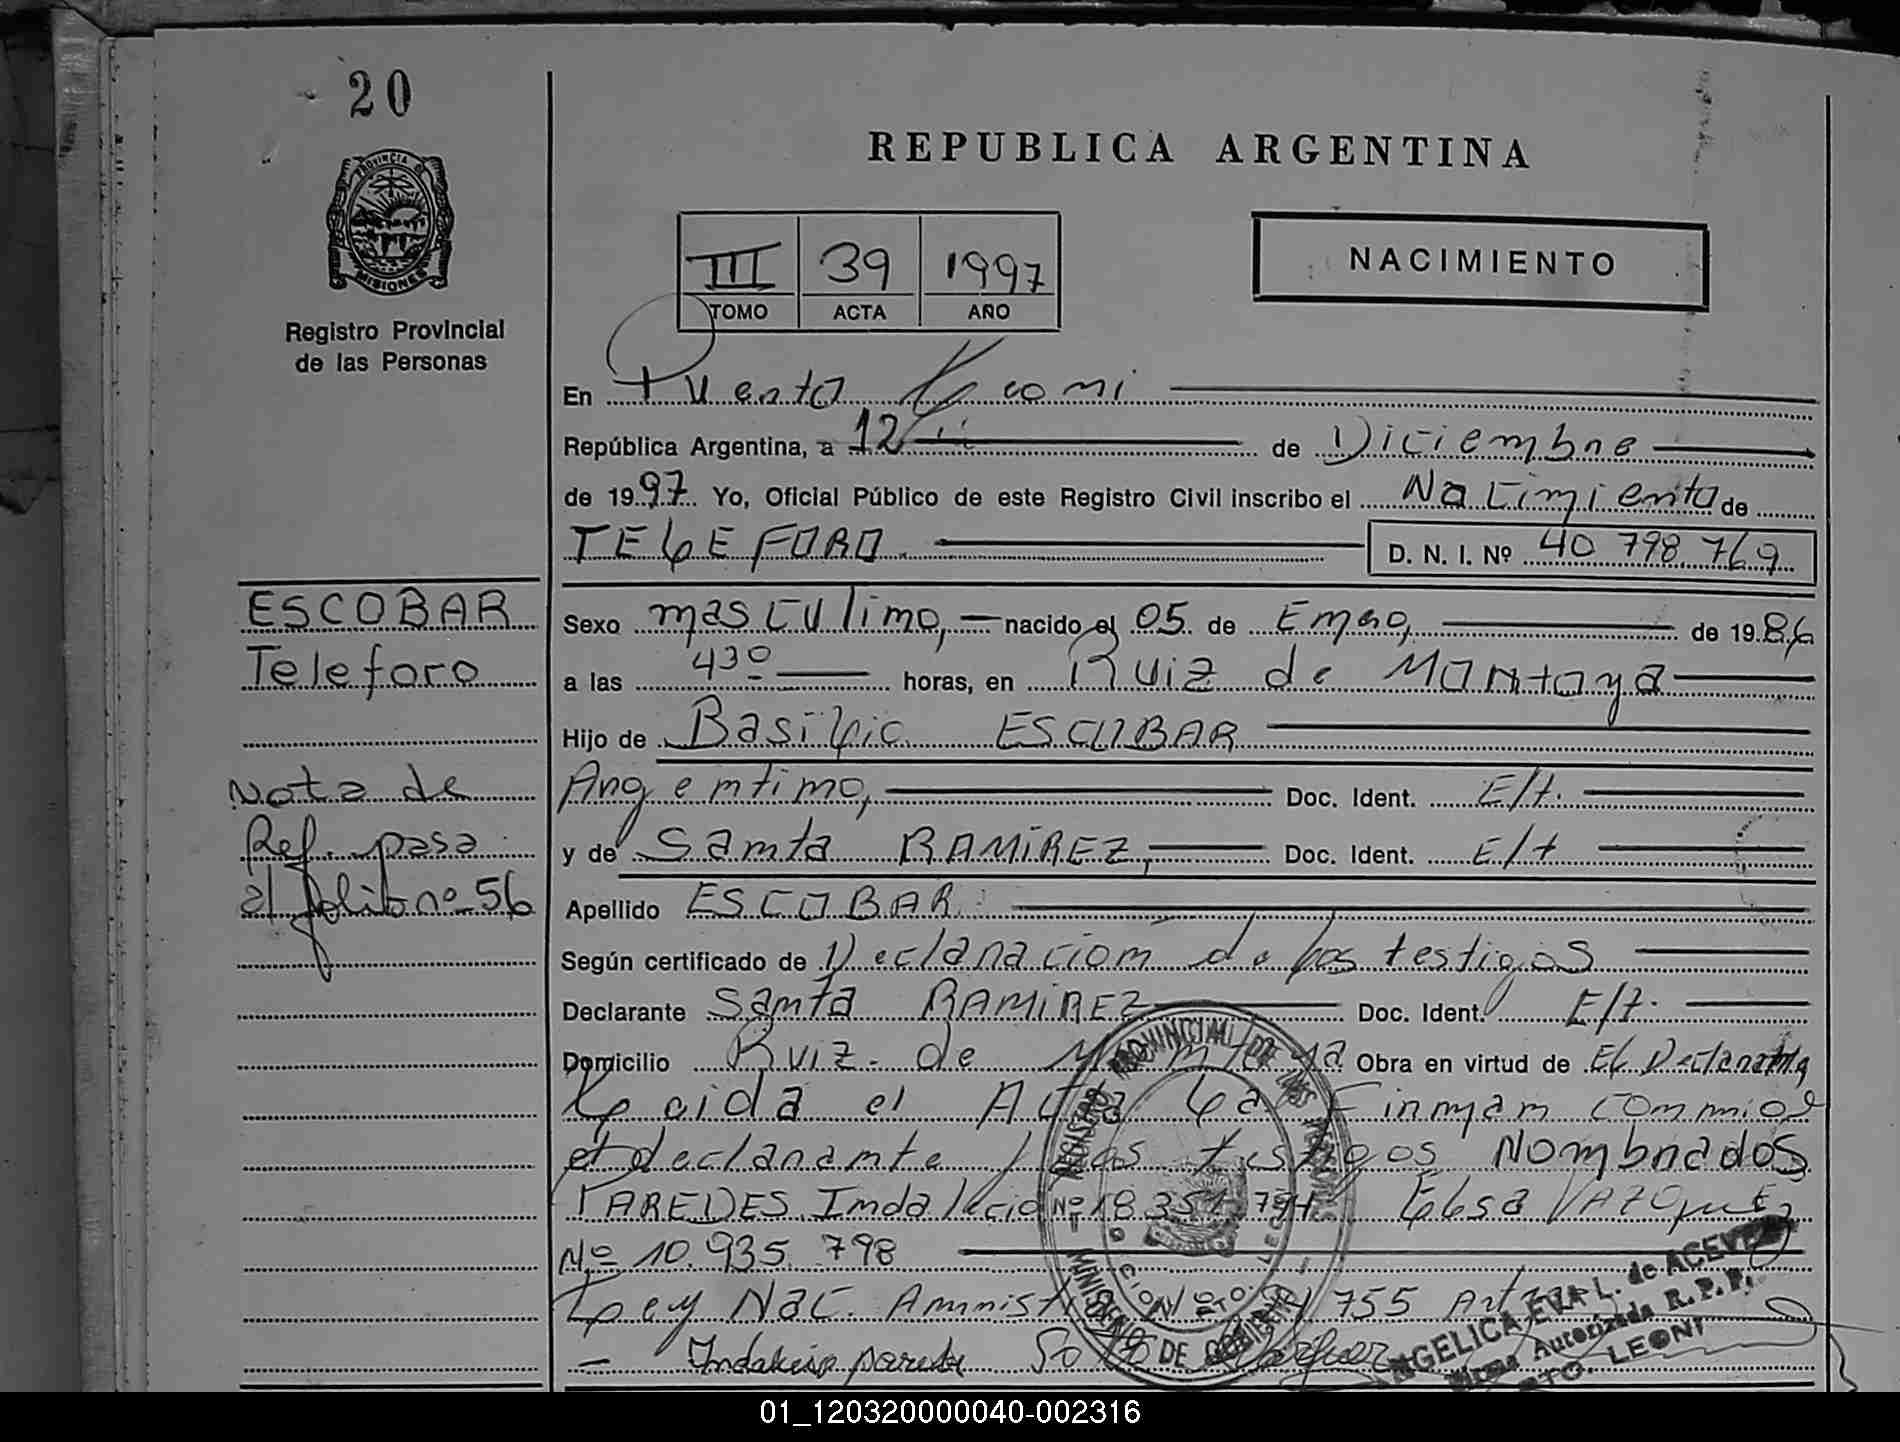 20
PROVINCIA D
MISIONES
Registro Provincial
de las Personas
REPUBLICA ARGENTINA
III 39 1997
TOMO ACTA AÑO
NACIMIENTO
En Puerto Leoni
República Argentina, a 12 de Diciembre
de 1997 Yo, Oficial Público de este Registro Civil inscribo el Nacimiento de
TELEFORO. D. N. I. Nº 40 798 769
ESCOBAR
Teleforo
Nota de
Ref. pasa
al folio nº 56
Sexo masculino, nacido el 05 de Enero, de 1986
a las 43º horas, en Ruiz de Montoya
Hijo de Basilio ESCOBAR
Argentino, Doc. Ident. E/t.
y de Santa RAMIREZ, Doc. Ident. E/t
Apellido ESCOBAR
Según certificado de Declaración de los testigos
Declarante Santa RAMIREZ Doc. Ident. E/t.
Domicilio Ruiz de Montoya Obra en virtud de El Declarante
Leida el Acta La Firman conmigo
el declarante y los testigos Nombrados
PAREDES Indalecio Nº 18.351.794 Elsa VAZQUEZ
Nº 10.935.798
Ley Nac. Amnistia Nº 755
Indalecio parede
ANGELICA EVA L. de ACEVEDO
Firma Autorizada R. P. P.
PTO. LEONI
REGISTRO PROVINCIAL DE LAS PERSONAS
MINISTERIO DE GOBIERNO
01_120320000040-002316